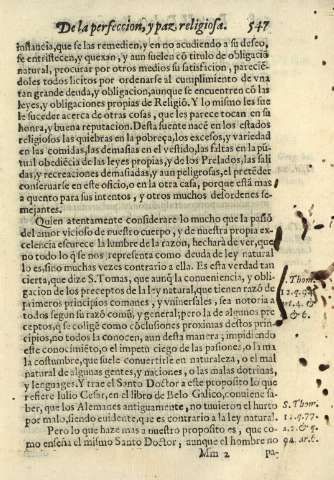 De la perfeccion, y paz religiosa. 547
instancia, que se las remedien, y en no acudiendo a su deseo,
se entristecen, y quexan, y aun suelen cõ titulo de obligaciõ
natural, procurar por otros medios su satisfacion, pareciẽ-
doles todos licitos por ordenarse al cumplimiento de vna
tan grande deuda, y obligacion, aunque se encuentren cõ las
leyes, y obligaciones propias de Religiõ. Y lo mismo les sue
le suceder acerca de otras cosas, que les parece tocan en su
honra, y buena reputacion. Desta fuente nacẽ en los estados
religiosos las quiebras en la pobreça, los excesos, y variedad
en las comidas, las demasias en el vestido, las faltas en la pũ-
tual obediẽcia de las leyes propias, y de los Prelados, las sali
das, y recreaciones demasiadas, y aun peligrosas, el pretẽder
conseruarse en este oficio, o en la otra casa, porque està mas
a quento para sus intentos, y otros muchos desordenes se-
mejantes.
Quien atentamente considerare lo mucho que la pasiõ
del amor vicioso de nuestro cuerpo, y de nuestra propia ex-
celencia escurece la lumbre de la razon, hecharà de ver, que
no todo lo q̃ se nos representa como deuda de ley natural
lo es, sino muchas vezes contrario a ella. Es esta verdad tan
cierta, que dize S. Tomas, que aunq̃ la conueniencia, y obli-
gacion de los preceptos de la ley natural, que tienen razõ de
primeros principios comunes, y vniuersales, sea notoria a
todos segun su razõ comũ, y general; pero la de algunos pre
ceptos, q̃ se coligẽ como cõclusiones proximas destos prin-
cipios, no todos la conocen, aun desta manera; impidiendo
este conocimiẽto, o el impetu ciego de las pasiones, o la ma
la costumbre, que suele conuertirse en naturaleza, o el mal
natural de algunas gentes, y naciones, o las malas dotrinas,
y lenguages. Y trae el Santo Doctor a este proposito lo que
refiere Iulio Cesar, en el libro de Belo Galico, conuiene sa-
ber, que los Alemanes antiguamente, no tuuieron el hurto
por malo, siendo euidente, que es contrario a la ley natural.
Pero lo que haze mas a nuestro proposito es, que co-
mo enseña el mismo Santo Doctor, aunque el hombre no
Mm 2 pu-
S. Thom.
1.2.q.94
art.4.
& 6.
S. Thom.
1.2.q.77.
a.2. & q.
94. ar.6.